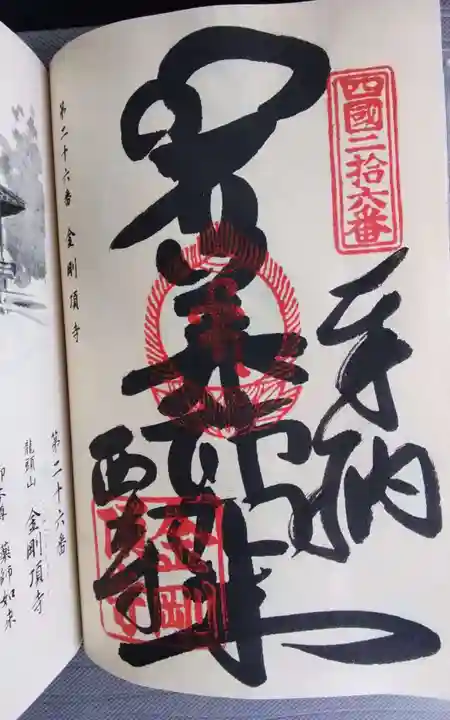 四國二拾六番
奉納
薬師如来
西寺
金剛
第二十六番 金剛頂寺
第二十六番
龍頭山 金剛頂寺
御本尊 薬師如来